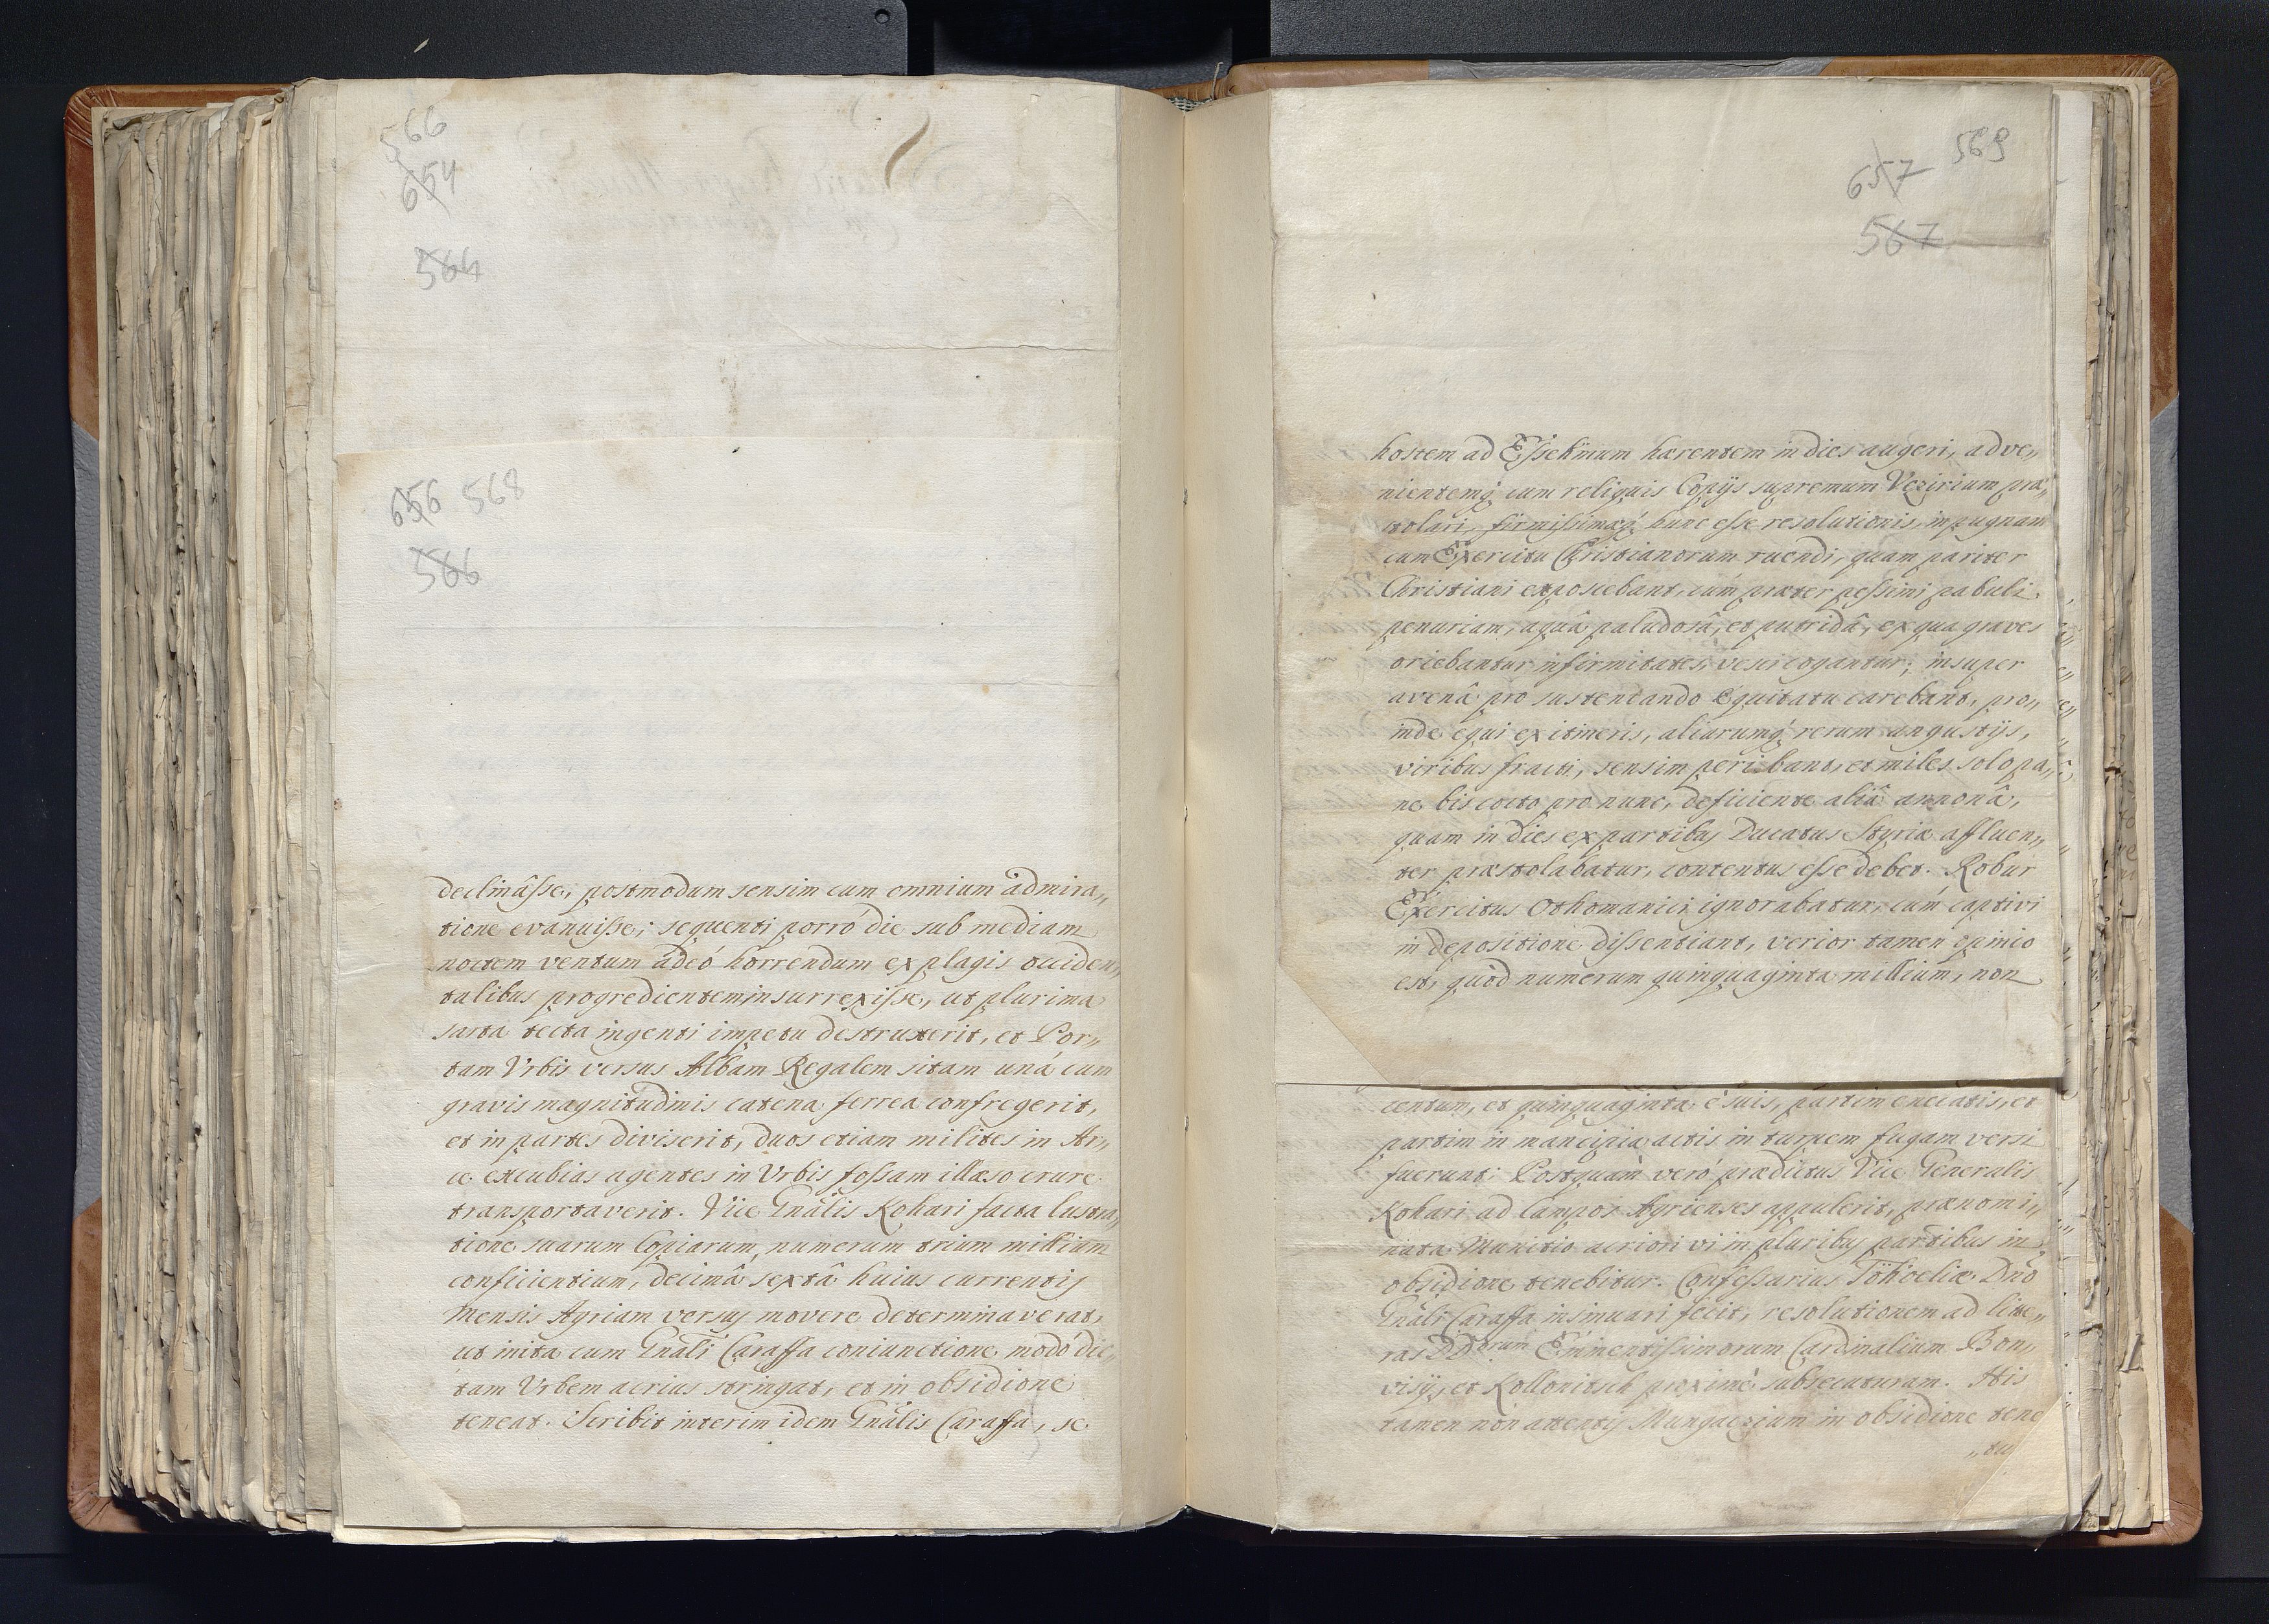 566
654
564
656 568
566
declinâsse; postmodum sensim cum omnium admira„
tione evanuisse; sequenti porró die sub mediam
noctem ventum adeó horrendum ex plagis occiden„
talibus progredientem insurrexisse, ut plurima
sarta tecta ingenti impetu destruxerit, et Por„
tam Vrbis versus Albam Regalem sitam uná cum
gravis magnitudinis catena ferrea confregerit,
et in partes diviserit, duos etiam milites in Ar„
ce excubias agentes in Vrbis fossam illæso crure
transportaverit. Vice Gnâlis Kohari facta lustra„
tione suarum Copiarum, numerum trium millium
conficientium, decimâ sextâ huius currentis
Mensis Agriam versus movere determinaverat,
ut inita cum Gnâli Caraffa coniunctione modó dic„
tam Vrbem acrius stringat, et in obsidione
teneat. Scribit interim idem Gnâlis Caraffa, se
569
657
567
hostem ad Essekinum hærentem in dies augeri, adve„
nientemq cum reliquis Copijs supremum Vezirium præ„
stolari, firmissimæq hunc esse resolutionis, in pugnam
cum Exercitu Christianorum ruendi, quam pariter
Christiani exposcebant, cúm præter pessimi pabuli
penuriam, aquâ paludosâ, et putridâ, ex qua graves
oriebantur infirmitates, vesci cogantur; insuper
avenâ pro sustentando Equitatu carebant, pro„
inde equi ex itineris, aliarumq rerum angustijs,
viribus fracti, sensim peribant, et miles solo pa„
ne biscocto pro nunc, deficiente aliâ annonâ,
quam in dies ex partibus Ducatus Styriæ affluen„
ter præstolabatur, contentus esse debet. Robur
Exercitus Othomanici ignorabatur, cúm captivi
in depositione dissentiant, verior tamen opinio
est, quòd numerum quinquaginta millium, non
centum, et quinquaginta è suis, partim enecatis, et
partim in mancipia actis in turpem fugam versi
fuerunt. Postquam veró prædictus Vice Generalis
Kohari ad Campos Agrienses appulerit, prænomi„
nata Munitio acriori vi in pluribus partibus in
obsidione tenebitur. Confessarius Tököeliæ Dno
Gnâli Caraffa insinuari fecit, resolutionem ad litte„
ras DDorum Eminentissimorum Cardinalium Bon„
visij, et Kollonitsch proximé subsecuturam. His
tamen non attentis Mungaczium in obsidione tene
„tu